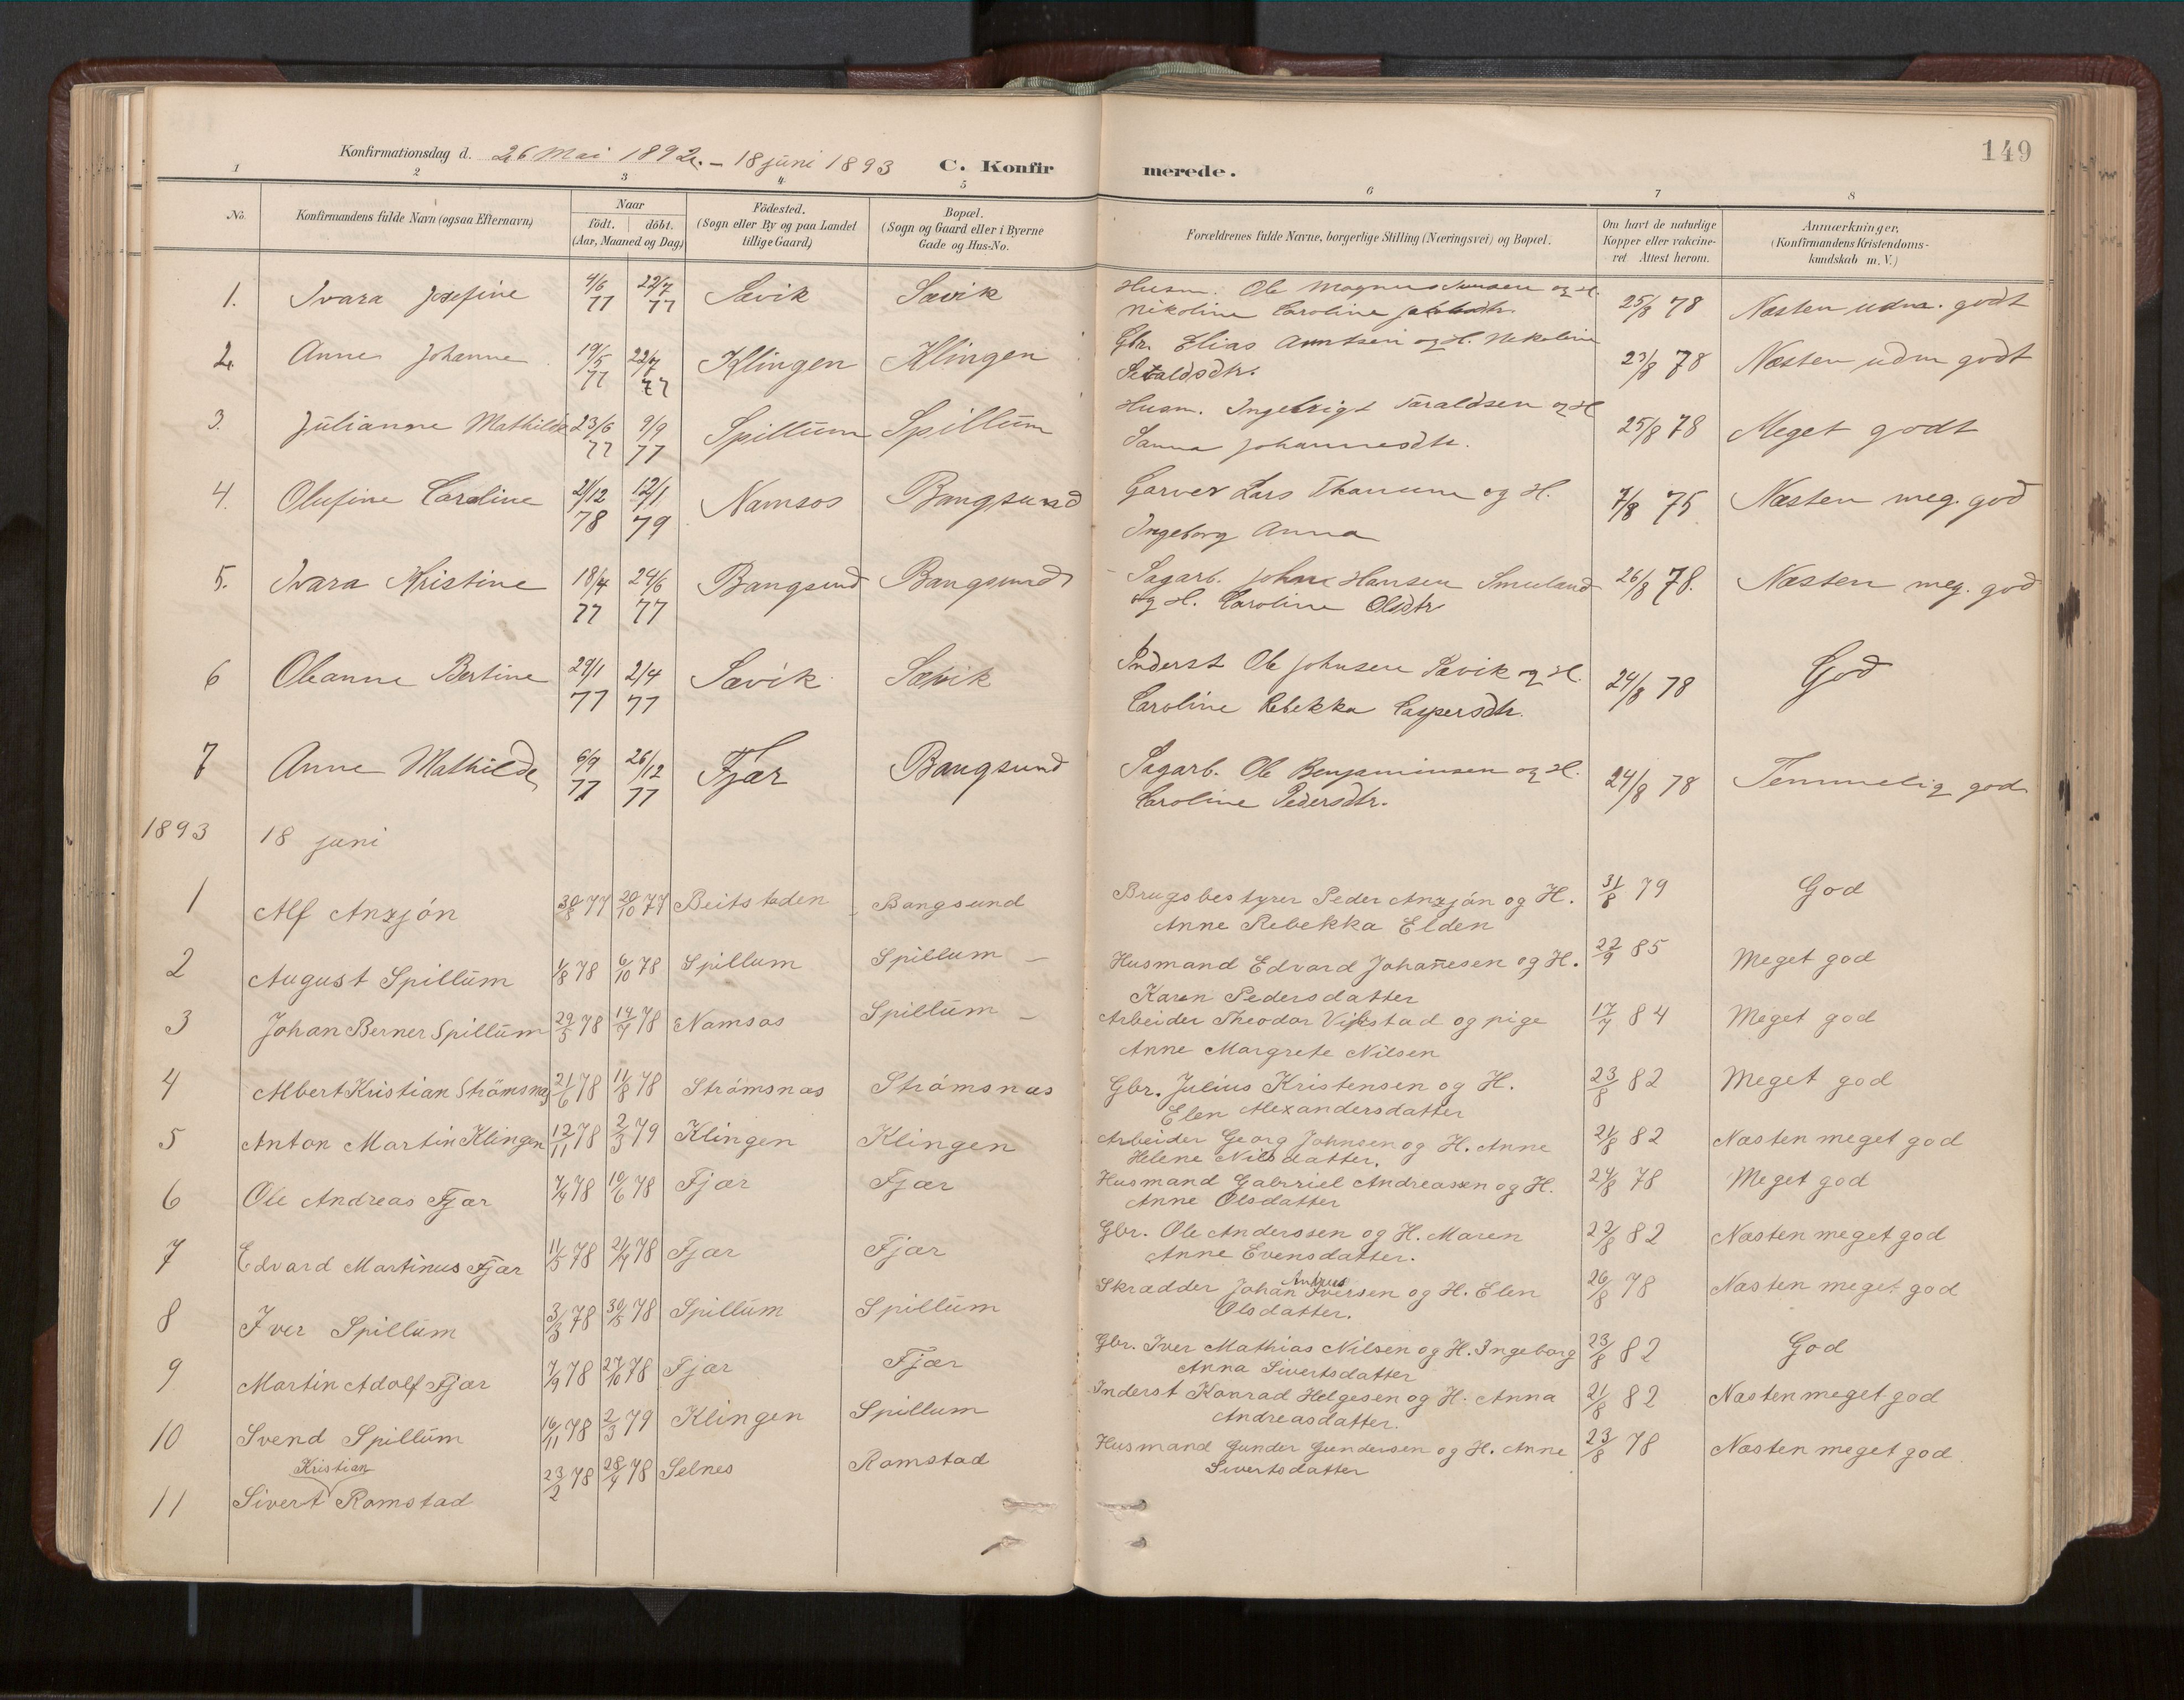 149
Konfirmationsdag d. 26 Mai 1892. – 18 juni 1893 C. Konfirmerede.
1 2 3 4 5 6 7 8
No. Konfirmandens fulde Navn (ogsaa Efternavn) Naar födt. döbt. (Aar, Maaned og Dag) Födested. (Sogn eller By og paa Landet tillige Gaard) Bopæl. (Sogn og Gaard eller i Byerne Gade og Hus-No. Forældrenes fulde Navne, borgerlige Stilling (Næringsvei) og Bopæl. Om havt de naturlige Kopper eller vakcineret Attest herom. Anmærkninger. (Konfirmandens Kristendomskundskab m. V.)
1. Ivara Josefine 4/6 77 22/7 77 Sævik Sævik Husm. Ole Magnus og H. 25/8 78 Næsten udm. godt
Nikoline Caroline
2. Anne Johanne 19/5 77 22/7 77 Klingen Klingen Gbr. Elias Arntsen og H. Nikoline 23/8 78 Næsten udm godt
3. Julianne Mathilde 23/6 77 9/9 77 Spillum Spillum Husm. Ingebrigt Taraldsen og H 25/8 78 Meget godt
Sanna Johannesdtr.
4. Olufine Caroline 21/12 78 12/1 79 Namsos Bangsund Garver Lars og H. 7/8 75 Næsten meg. god
Ingeborg Anna
5. Ivara Kristine 18/4 77 24/6 77 Bangsund Bangsund Sagarb. Johan Hansen og H. Caroline Olsdtr 26/8 78. Næsten meg. god
6 Oleanne Bertine 29/1 77 2/4 77 Sævik Sævik Inderst Ole Johnsen Sævik og H. 24/8 78 God
Caroline Rebekka Caspersdtr.
7 Anne Mathilde 6/9 77 26/12 77 Fjær Bangsund Sagarb. Ole Benjaminsen og H. 24/8 78 Temmelig god
Caroline Pedersdtr.
1893 18 juni
1 Alf Anzjón 30/8 77 20/10 77 Beitstaden Bangsund Brugsbestyrer Peder Anzjón og H. 31/8 79 God
Anne Rebekka Elden
2 August Spillum 1/8 78 6/10 78 Spillum Spillum – Husmand Edvard Johannesen og H. 22/9 85 Meget god
Karen Pedersdatter
3 Johan Berner Spillum 29/5 78 14/7 78 Namsos Spillum – Arbeider Theodor Vikstad og pige 17/7 84 Meget god
Anne Margrete Nilsen
4 Albert Kristian Strömsnæs 21/6 78 11/8 78 Strömsnæs Strömsnæs Gbr. Julius Kristensen og H. 23/8 82 Meget god
Elen Alexandersdatter
5 Anton Martin Klingen 12/11 78 2/3 79 Klingen Klingen Arbeider Georg Johnsen og H. Anne 21/8 82 Næsten meget god
Helene Nilsdatter.
6 Ole Andreas Fjær 7/4 78 10/6 78 Fjær Fjær Husmand Gabriel Andreassen og H. 24/8 78 Meget god
Anne Olsdatter
7 Edvard Martinus Fjær 11/5 78 21/7 78 Fjær Fjær Gbr. Ole Anderssen og H. Maren 22/8 82 Næsten meget god
Anne Evensdatter.
8 Iver Spillum 3/3 78 30/5 78 Spillum Spillum Skrædder Johan Andreas Iversen og H. Elen 26/8 78 Næsten meget god
Olsdatter.
9 Martin Adolf Fjær 7/9 78 27/10 78 Fjær Fjær Gbr. Iver Mathias Nilsen og H. Ingeborg 23/8 82 God
Anna Sivertsdatter
10 Svend Spillum 16/11 78 2/3 79 Klingen Spillum Inderst Konrad Helgesen og H. Anna 21/8 82 Næsten meget god
Andreasdatter.
11 Sivert Kristian Ramstad 23/2 78 28/4 78 Selnes Ramstad Husmand Gunder Gundersen og H. Anne 23/8 78 Næsten meget god
Sivertsdatter